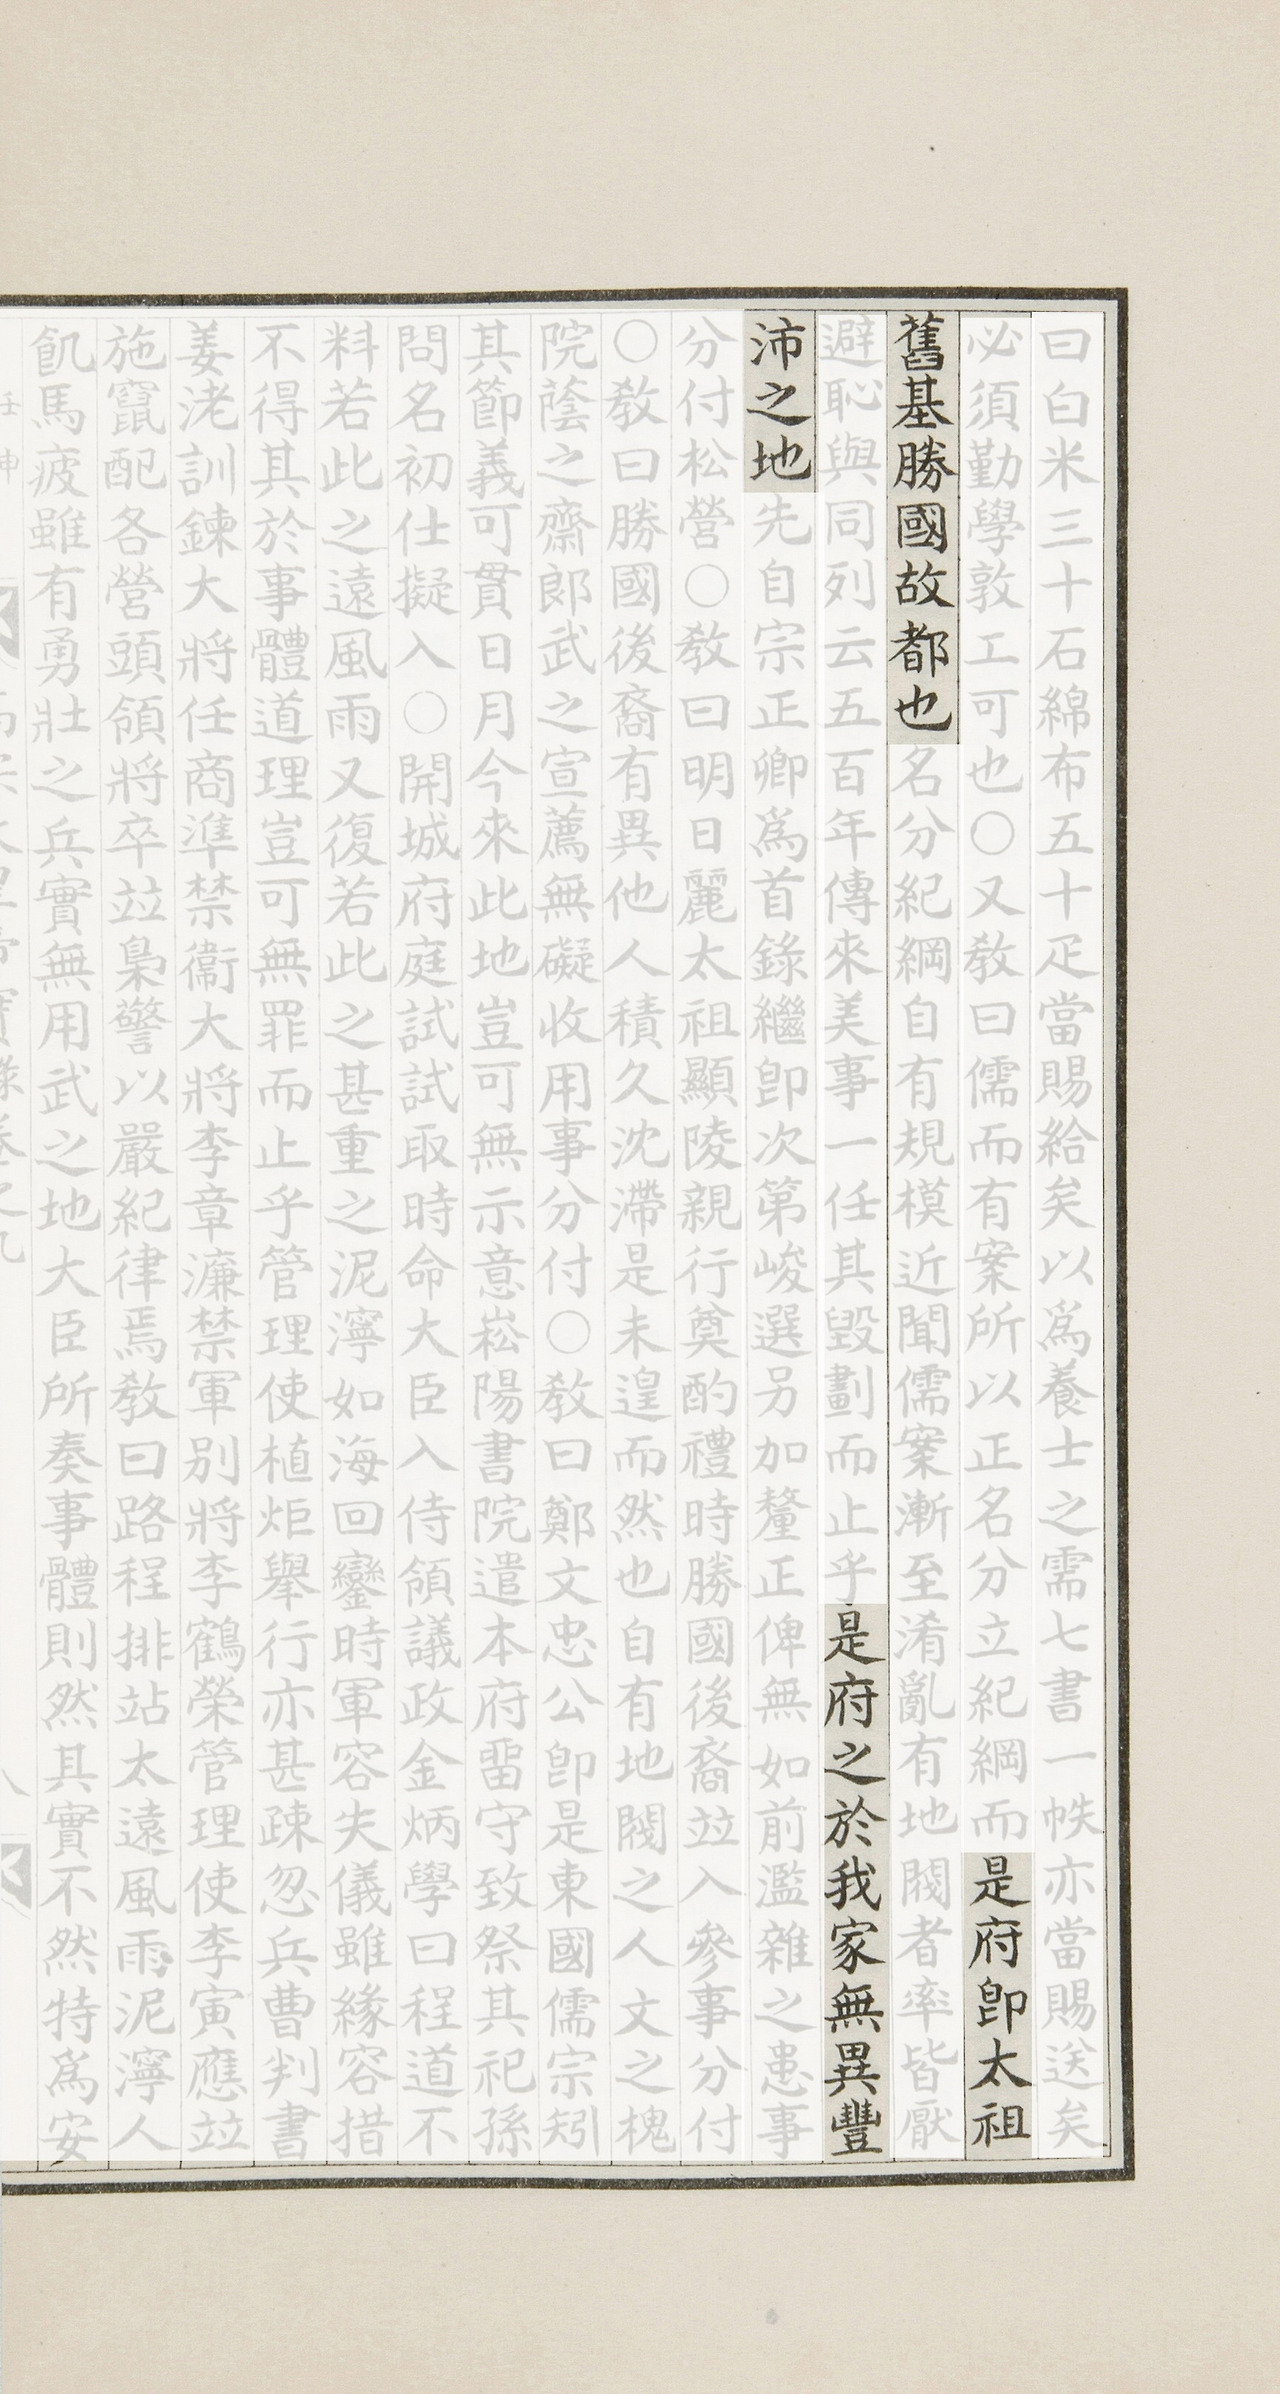 曰白米三十石綿布五十疋當賜給矣以爲養士之需七書一帙亦當賜送矣
必須勤學敦工可也○又敎曰儒而有案所以正名分立紀綱而是府卽太祖
舊基勝國故都也名分紀綱自有規模近聞儒案漸至淆亂有地閥者率皆厭
避恥與同列云五百年傳來美事一任其毀劃而止乎是府之於我家無異豐
沛之地先自宗正卿爲首錄繼卽次第峻選另加釐正俾無如前濫雜之患事
分付松營○敎曰明日麗太祖顯陵親行奠酌禮時勝國後裔竝入參事分付
○敎曰勝國後裔有異他人積久沈滯是未遑而然也自有地閥之人文之槐
院蔭之齋郞武之宣薦無礙收用事分付○敎曰鄭文忠公卽是東國儒宗矧
其節義可貫日月今來此地豈可無示意崧陽書院遣本府留守致祭其祀孫
問名初仕擬入○開城府庭試試取時命大臣入侍領議政金炳學曰程道不
料若此之遠風雨又復若此之甚重之泥濘如海回鑾時軍容失儀雖緣容措
不得其於事體道理豈可無罪而止乎管理使植炬擧行亦甚疎忽兵曹判書
姜㳣訓鍊大將任商準禁衞大將李章濂禁軍別將李鶴榮管理使李寅應竝
施竄配各營頭領將卒竝梟警以嚴紀律焉敎曰路程排站太遠風雨泥濘人
飢馬疲雖有勇壯之兵實無用武之地大臣所奏事體則然其實不然特爲安